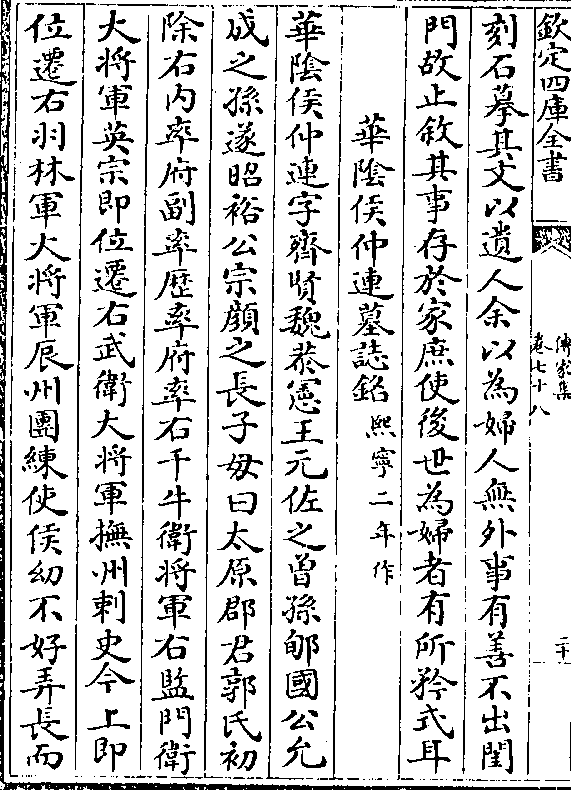 欽定四庫全書
傳家集
卷七十八
二十
刻石摹其文以遺人余以為婦人無外事有善不出閨
門故止敘其事存於家庶使後世為婦者有所矜式耳
華陰侯仲連墓誌銘熙寧二年作
華陰侯仲連字齊賢魏恭憲王元佐之曾孫郇國公允
成之孫遂昭裕公宗顔之長子母曰太原郡君郭氏初
除右内率府副率歴率府率右千牛衛將軍右監門衛
大將軍英宗即位遷右武衛大將軍撫州刺史今上即
位遷右羽林軍大將軍辰州團練使侯幼不好弄長而